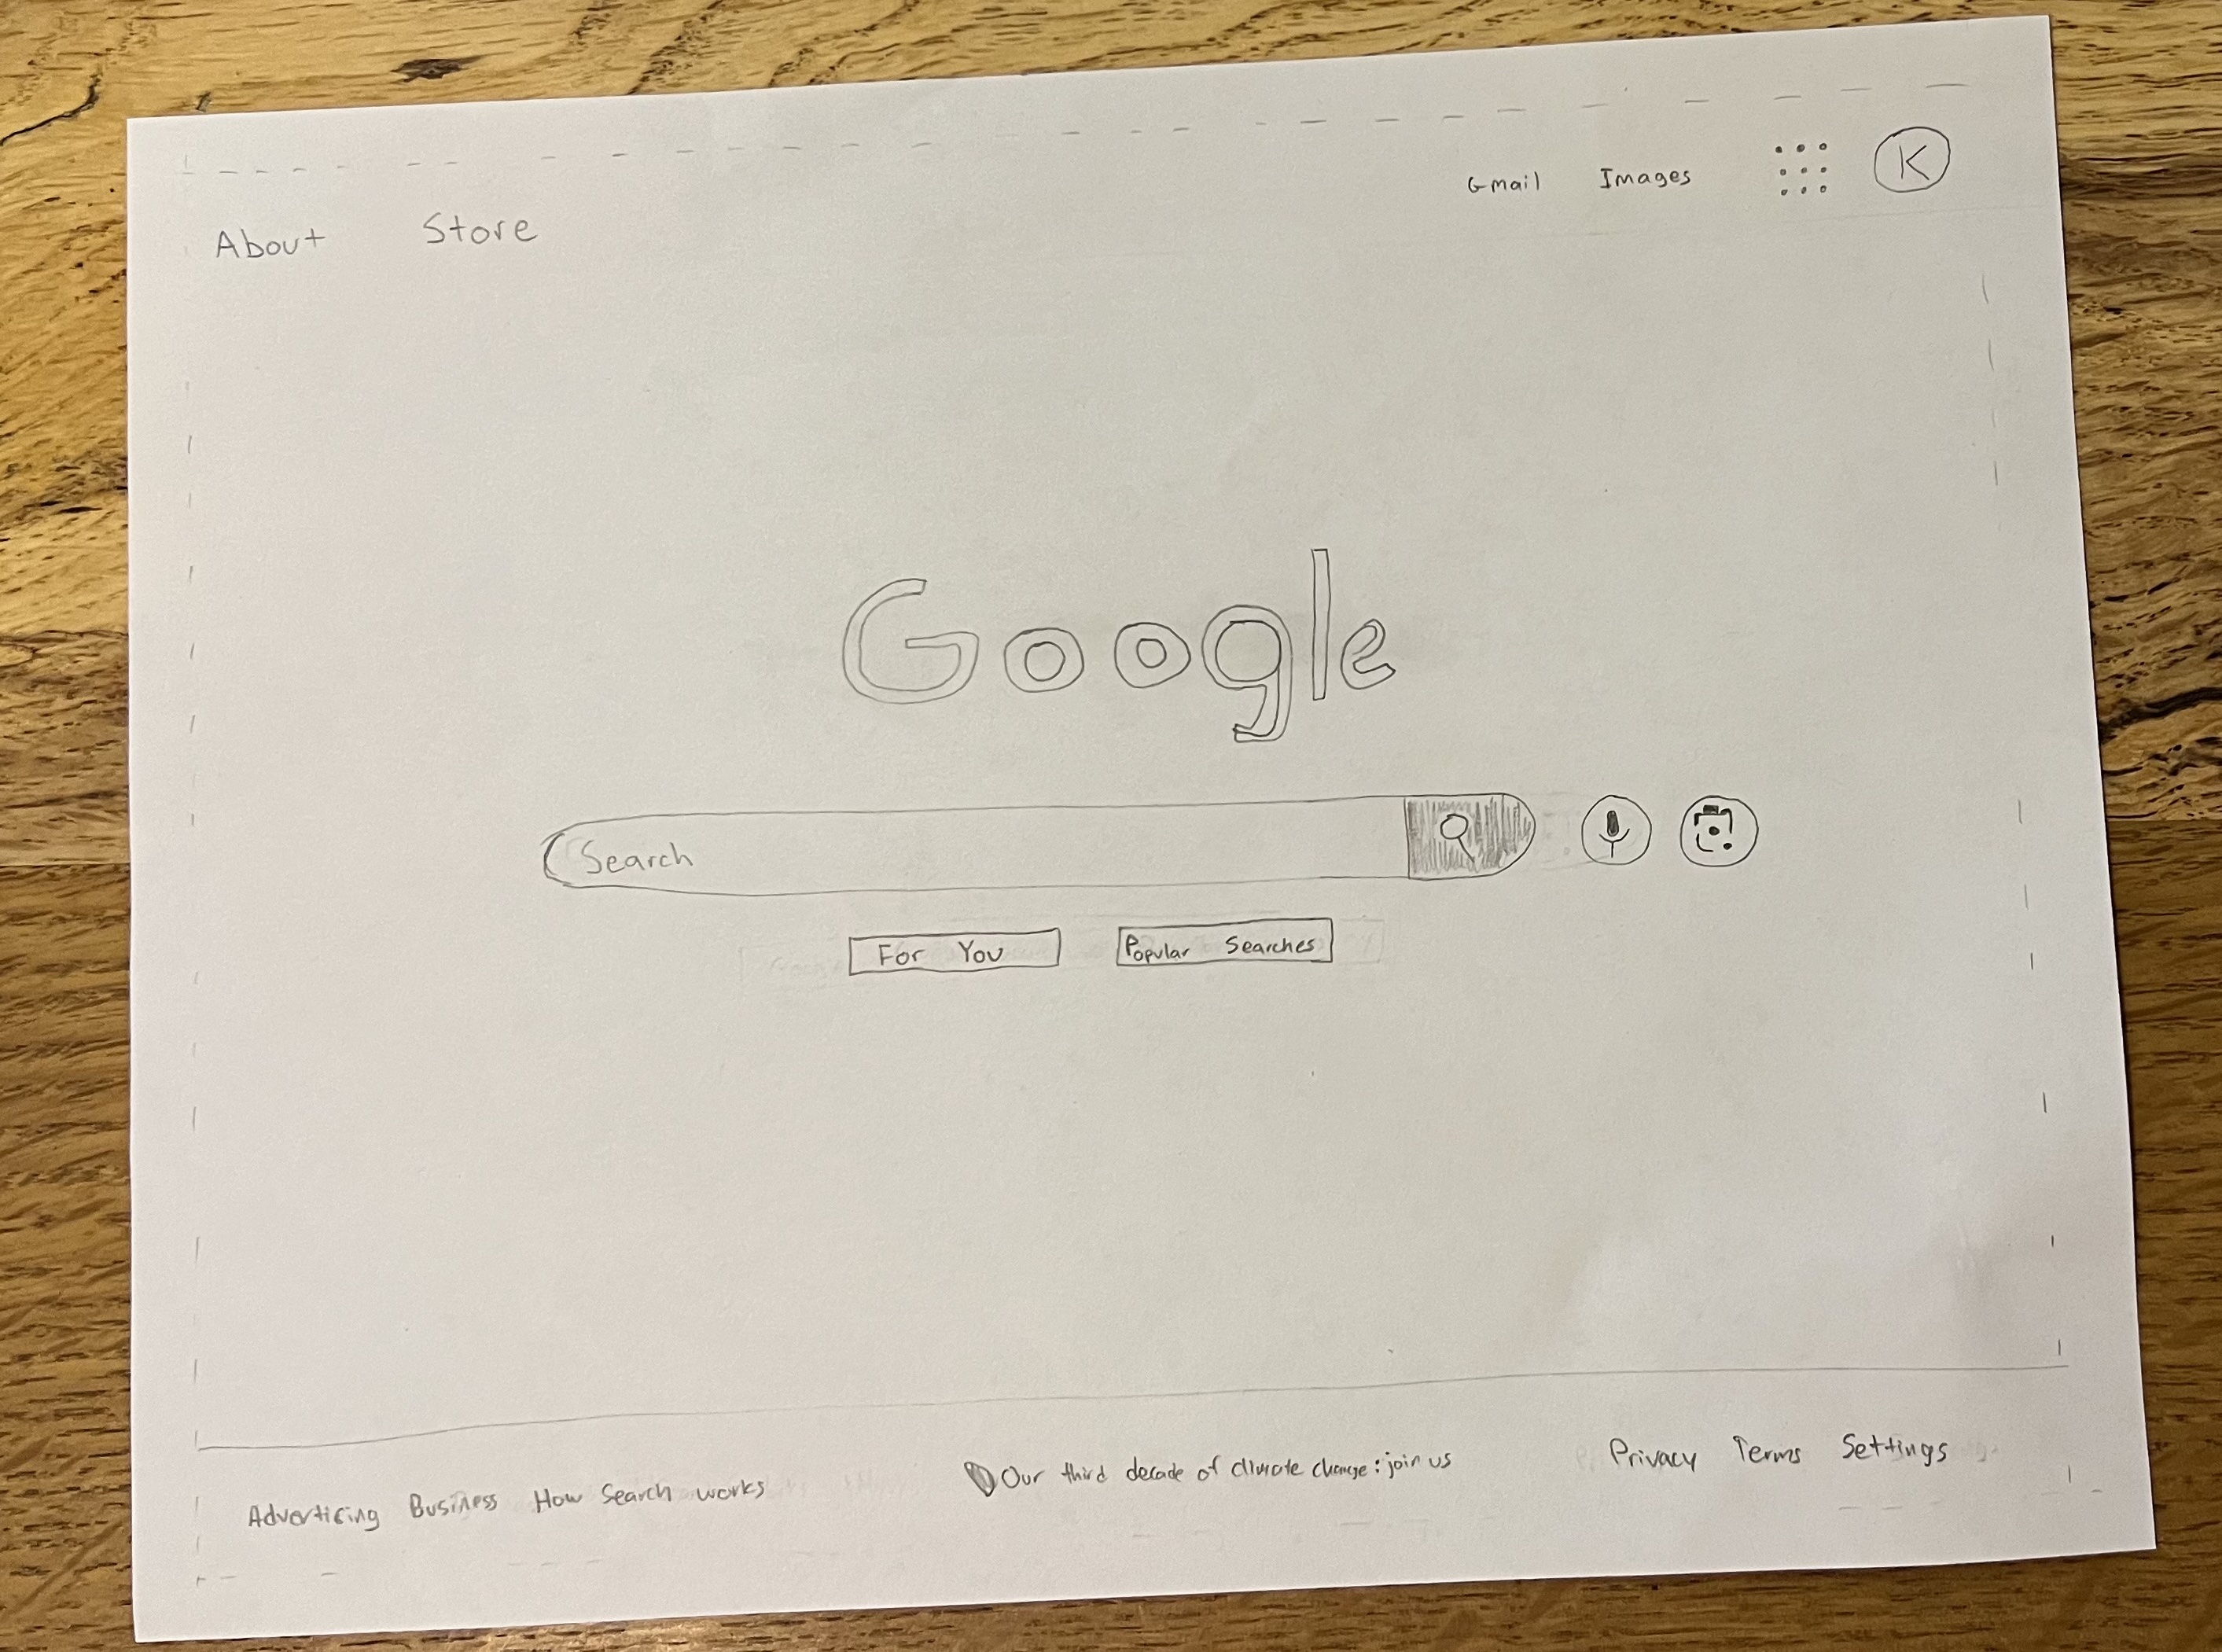 About Store Gmail Images K
Google
Search
For You Popular Searches
Advertising Business How Search works Our third decade of climate change: join us Privacy Terms Settings